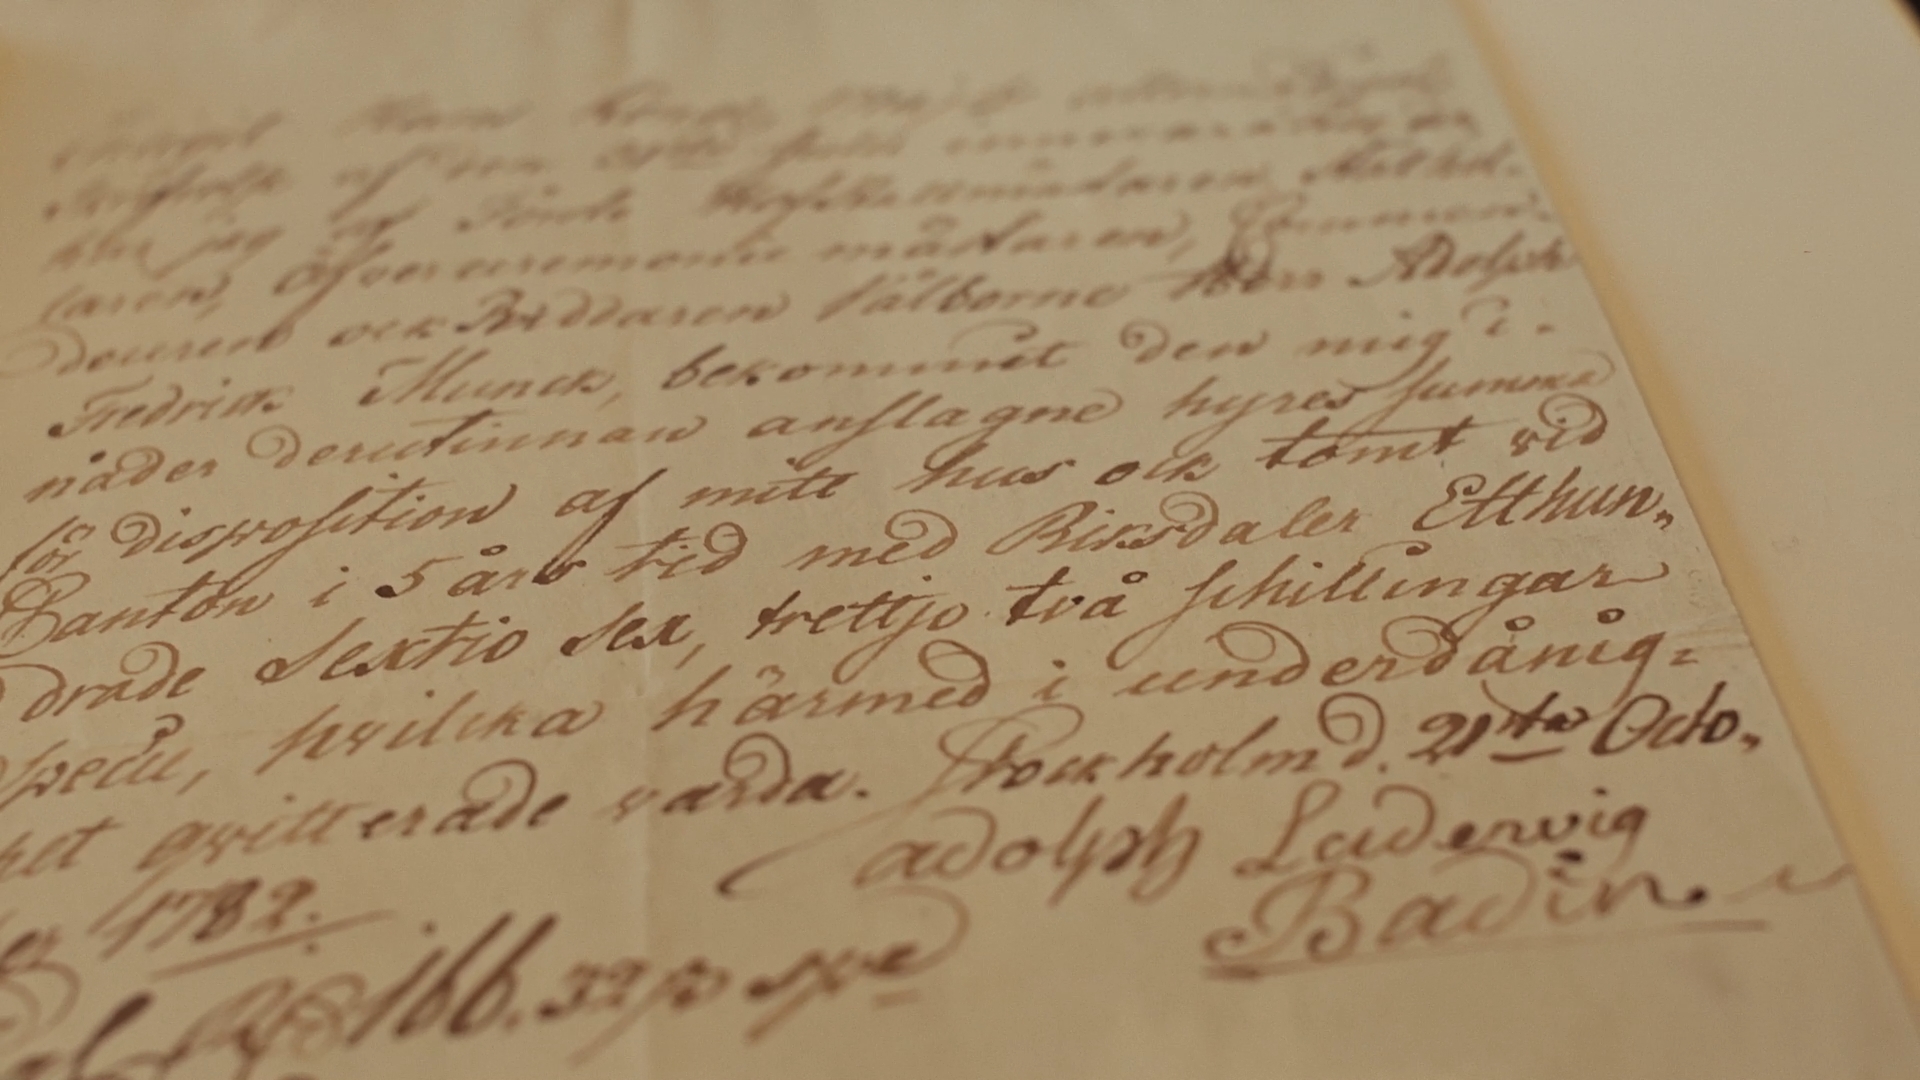 af den
jag af Hofstallmästaren, Ståthål-
laren, Öfverceremonie mästaren, Commen-
deuren ock Riddaren Välborne Herr Adolph
Fredrick Munck, bekommit den mig i
nåder derutinnan anslagne hyres summa
för disposition af mitt hus ock tomt vid
Canton i 5 års tid med Riksdaler Etthun„
drade Sextio Sex, trettjo två schillingar
specie, hvilcka härmed i underdånig=
het qvitterade varda. Stockholm d. 21sta Octo„
ber 1782.
Adolph Ludervig
Badin
166. 32